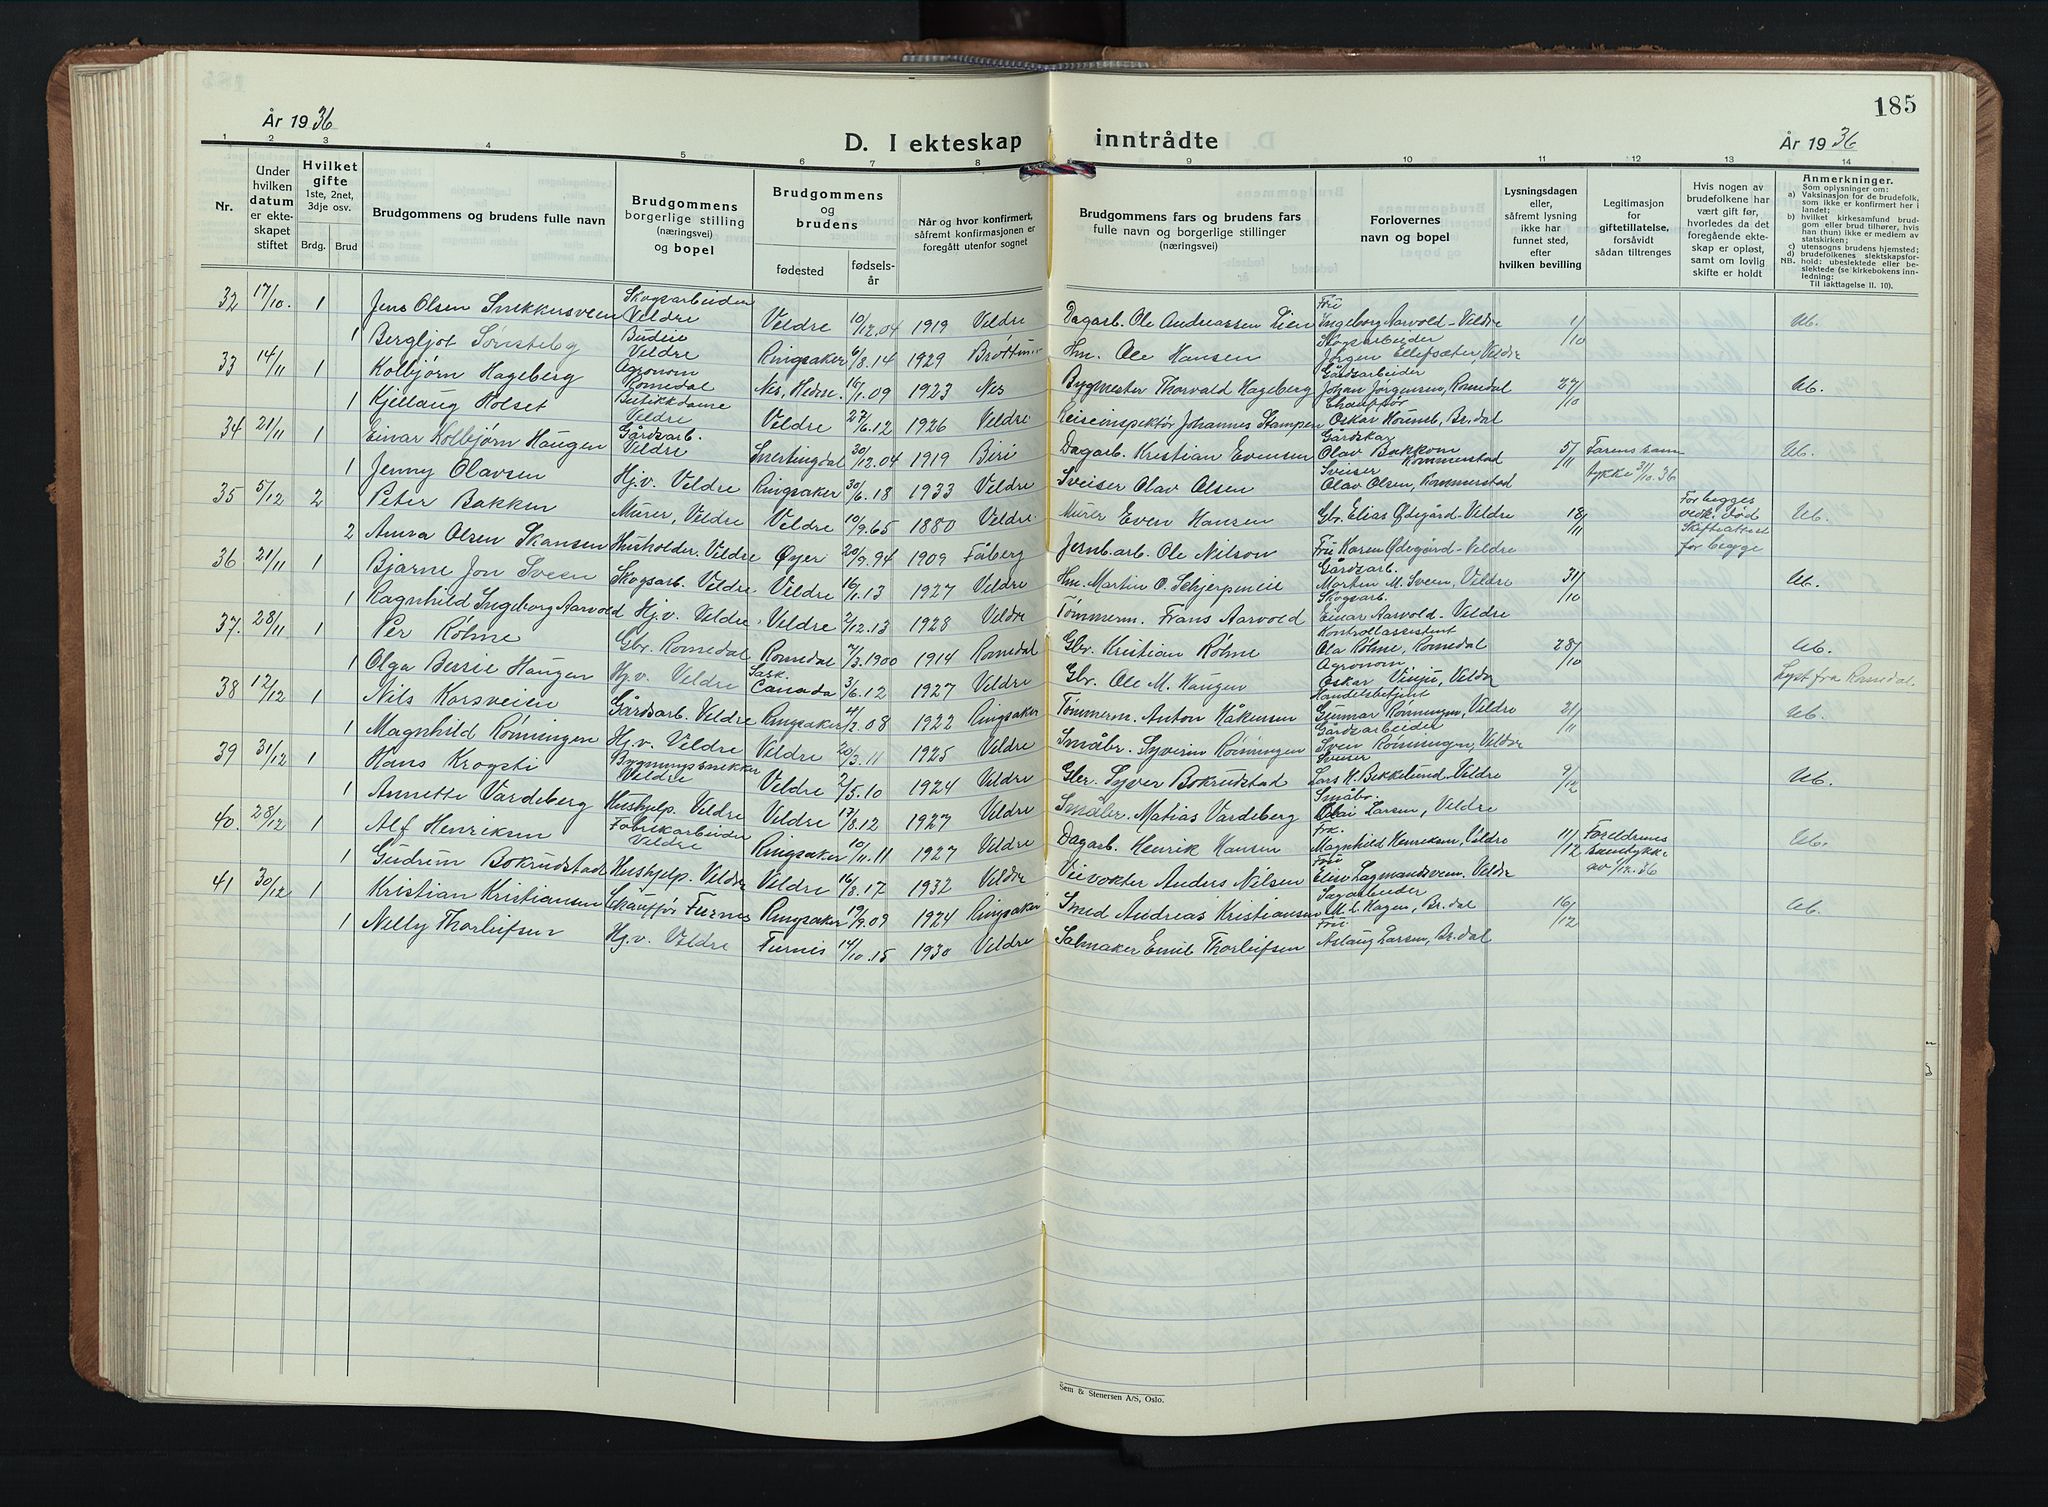 185
År 1936
D. I ekteskap inntrådte
År 1936
1 2 3 4 5 6 7 8 9 10 11 12 13 14
Nr.
Under hvilken datum er ekteskapet stiftet
Hvilket gifte 1ste, 2net, 3dje osv.
Brdg. Brud
Brudgommens og brudens fulle navn
Brudgommens borgerlige stilling (næringsvei) og bopel
Brudgommens og brudens
fødested
fødselsår
Når og hvor konfirmert, såfremt konfirmasjonen er foregått utenfor sognet
Brudgommens fars og brudens fars fulle navn og borgerlige stillinger (næringsvei)
Forlovernes navn og bopel
Lysningsdagen eller, såfremt lysning ikke har funnet sted, efter hvilken bevilling
Legitimasjon for giftetillatelse, forsåvidt sådan tiltrenges
Hvis nogen av brudefolkene har vært gift før, hvorledes da det foregående ekteskap er opløst, samt om lovlig skifte er holdt
Anmerkninger.
Som oplysninger om:
a) Vaksinasjon for de brudefolk, som ikke er konfirmert her i landet;
b) hvilket kirkesamfund brudgom eller brud tilhører, hvis han (hun) ikke er medlem av statskirken;
c) utensogns brudens hjemsted;
d) brudefolkenes slektskapsforhold: ubeslektede eller beslektede (se kirkebokens innledning:
NB. Til iakttagelse II. 10).
32 17/10. 1 Jens Olsen Snekkersveen Skogsarbeider Veldre Veldre 10/12.04 1919 Veldre Dagarb. Ole Andreassen Lien Fru Ingeborg Aarvold - Veldre 1/10 Ub.
1 Bergljot Sørnsteby Budeie Veldre Ringsaker 6/8.14 1929 Brøttum Hm. Ole Hansen Skogsarbeider Jørgen Ellefsæter, Veldre
33 14/11 1 Kolbjørn Hageberg Agronom Romedal Nes, Hedm. 16/1.09 1923 Nes Bygmester Thorvald Hageberg Gårdsarbeider Johan Jørgensen, Romedal 27/10 Ub.
1 Kjellaug Holset Butikkdame Veldre Veldre 27/6.12 1926 Veldre Reiseinspektør Johannes Stampen Chauffør Oskar Houmb, Br.dal
34 21/11 1 Einar Kolbjørn Haugen Gårdsarb. Veldre Snertingdal 30/12.04 1919 Biri Dagarb. Kristian Evensen Gårdskar Olav Bakkom Kommerstad 5/11 Farens samtykke 31/10.36 Ub.
1 Jenny Olavsen Hj.v. Veldre Ringsaker 30/6.18 1933 Veldre Sveiser Olav Olsen Sveiser Olav Olsen, Kommerstad
35 5/12 2 Peter Bakken Murer, Veldre Veldre 10/9.65 1880 Veldre Murer Even Hansen Gbr. Elias Ødegård - Veldre 18/11 For begges vedk. død Skifteattest for begge Ub.
2 Anna Olsen Skansen Husholder. Veldre Øyer 20/9.94 1909 Fåberg Jernb.arb. Ole Nilson Fru Karen Ødegård - Veldre
36 21/11 1 Bjarne Jon Sveen Skogsarb. Veldre Veldre 16/1.13 1927 Veldre Hm. Martin O. Schjerpeneie Gårdsarb. Morten M. Sveen, Veldre 31/10 Ub.
1 Ragnhild Ingeborg Aarvold Hj.v. Veldre Veldre 2/12.13 1928 Veldre Tømmerm. Frans Aarvold Skogsarb. Einar Aarvold - Veldre
37. 28/11 1 Per Røhne Gbr. Romedal Romedal 2/3.1900 1914 Romedal Gbr. Kristian Røhne Kontrollassistent Ola Røhne, Romedal 28/10 Ub.
1 Olga Bessie Haugen Hj.v. Veldre Sask. Canada 3/6.12 1927 Veldre Gbr. Ole M. Haugen Agronom Oskar Vinju, Veldre Lyst fra Romedal.
38 12/12 1 Nils Korsveien Gårdsarb. Veldre Ringsaker 4/2.08 1922 Ringsaker Tømmerm. Anton Håkensen Handelsbetjent Gunnar Rønningen, Veldre 21/11 Ub.
1 Magnhild Rønningen Hj.v. Veldre Veldre 20/3.11 1925 Veldre Småbr. Syverin Rønningen Gårdsarbeider Sven Rønningen, Veldre
39 31/12 1 Hans Krogsti Bygningssnekker Veldre Veldre 2/5.10 1924 Veldre Gbr. Syver Bokrudstad Sveiser Lars H. Bekkelund, Veldre 9/12 Ub.
1 Annette Vardeberg Hushjelp. Veldre Veldre 17/8.12 1927 Veldre Småbr. Matias Vardeberg Småbr. Larsen, Veldre
40. 28/12 1 Alf Henriksen Fabrikarbeider Veldre Ringsaker 10/11.11 1927 Veldre Dagarb. Henrik Hansen Frk. Magnhild Henriksen, Veldre 11/12 Foreldrenes samtykke av 1/12.36 Ub.
1 Gudrun Bokrudstad Hushjelp. Veldre Veldre 16/8.17 1932 Veldre Veivokter Anders Nilsen Fru Elise Lagmandsveen. Veldre
41 30/12 1 Kristian Kristiansen Chauffør Furnes Ringsaker 19/9.09 1924 Ringsaker Smed Andreas Kristiansen Sagarbeider M. L. Hagen, Br.dal 16/12 Ub.
1 Nelly Thorleifsen Hj.v. Veldre Furnes 14/10.15 1930 Veldre Salmaker Emil Thorleifsen Fru Aslaug Larsen, Br.dal
Sem & Stenersen A/S, Oslo.